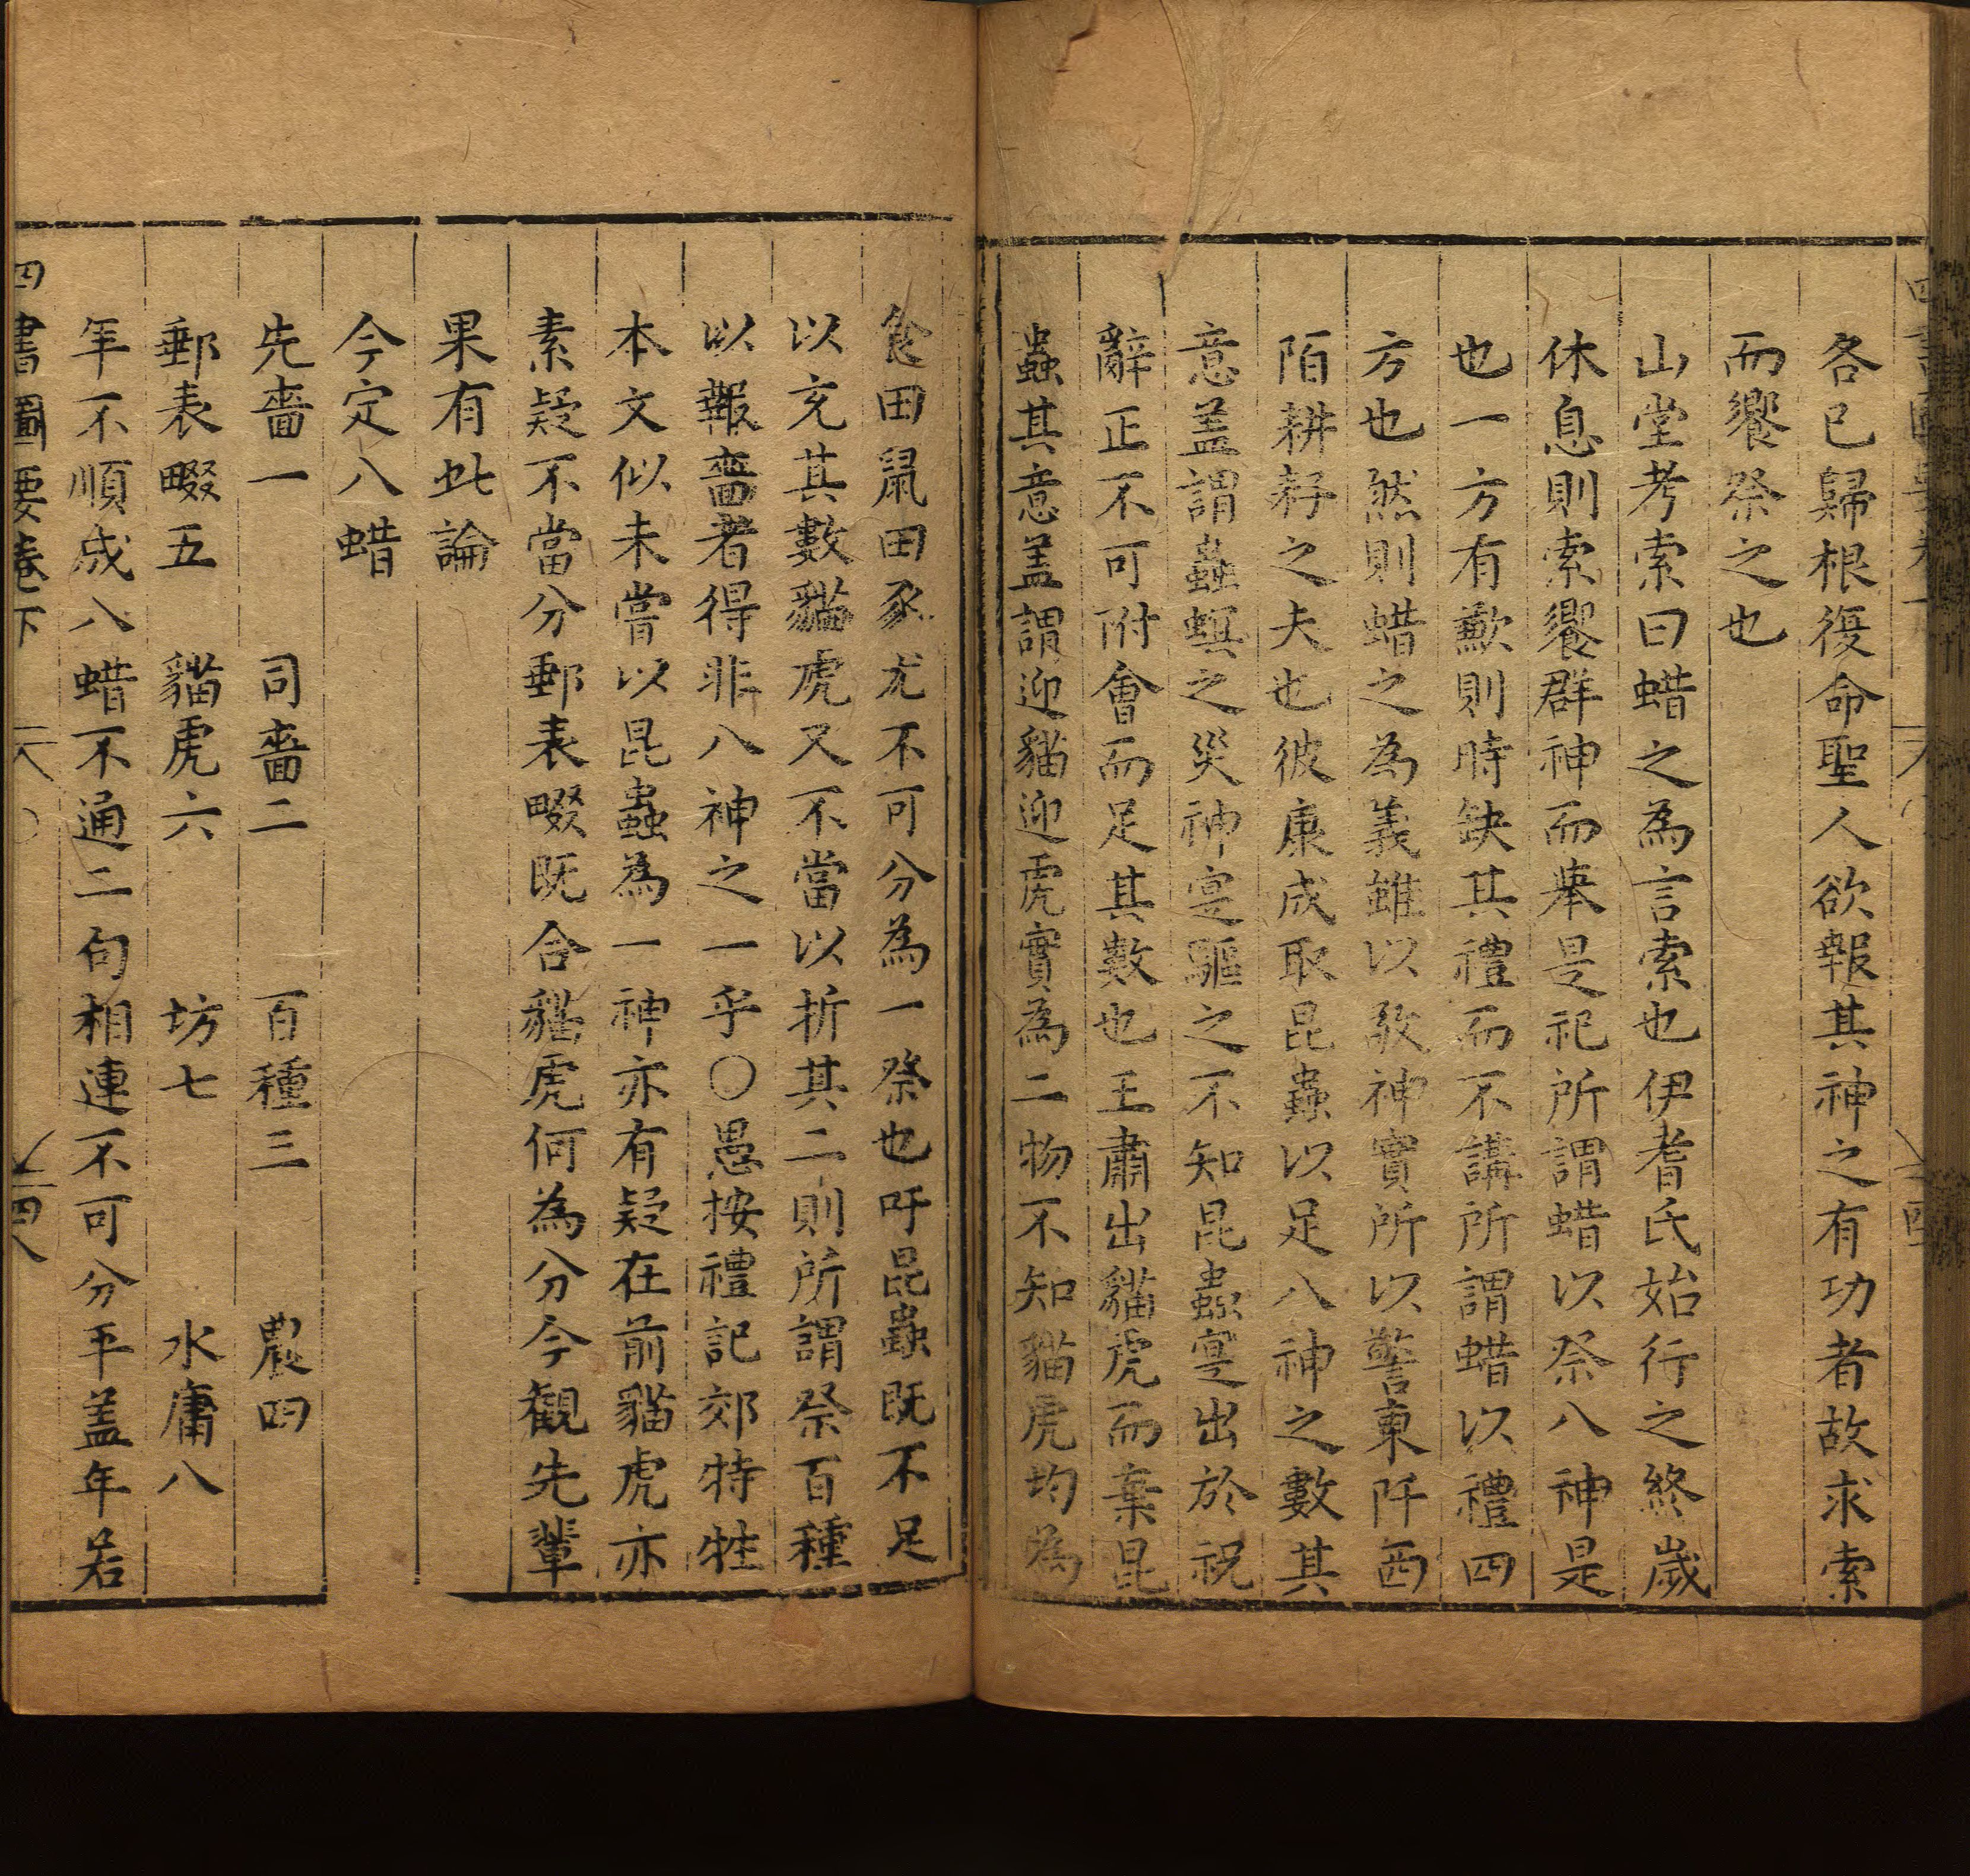 各已歸根復命聖人欲報其神之有功者故求索
而饗祭之也
山堂考索曰蜡之為言索也伊耆氏始行之終歲
休息則索饗群神而舉是祀所謂蜡以祭八神是
也一方有歉則時缺其禮而不講所謂蜡以禮四
方也然則蜡之為義雖以敬神實所以警東阡西
陌耕耔之夫也彼康成取昆蟲以足八神之數其
意盖謂蟲螟之災神寔驅之不知昆蟲寔出於祝
辭正不可附會而足其數也王肅出貓虎而棄昆
蟲其意盖謂迎貓迎虎實為二物不知貓虎均為
食田鼠田豕尤不可分為一祭也吁昆蟲既不足
以充其數貓虎又不當以折其二則所謂祭百種
以報嗇者得非八神之一乎〇愚按禮記郊特牲
本文似未嘗以昆蟲為一神亦有疑在前貓虎亦
素疑不當分郵表畷既合貓虎何為分今観先輩
果有此論
今定八蜡
先嗇一 司嗇二 百種三 農四
郵表畷五 貓虎六 坊七 水庸八
年不順成八蜡不通二句相連不可分平盖年若
四書圖要卷下 四八